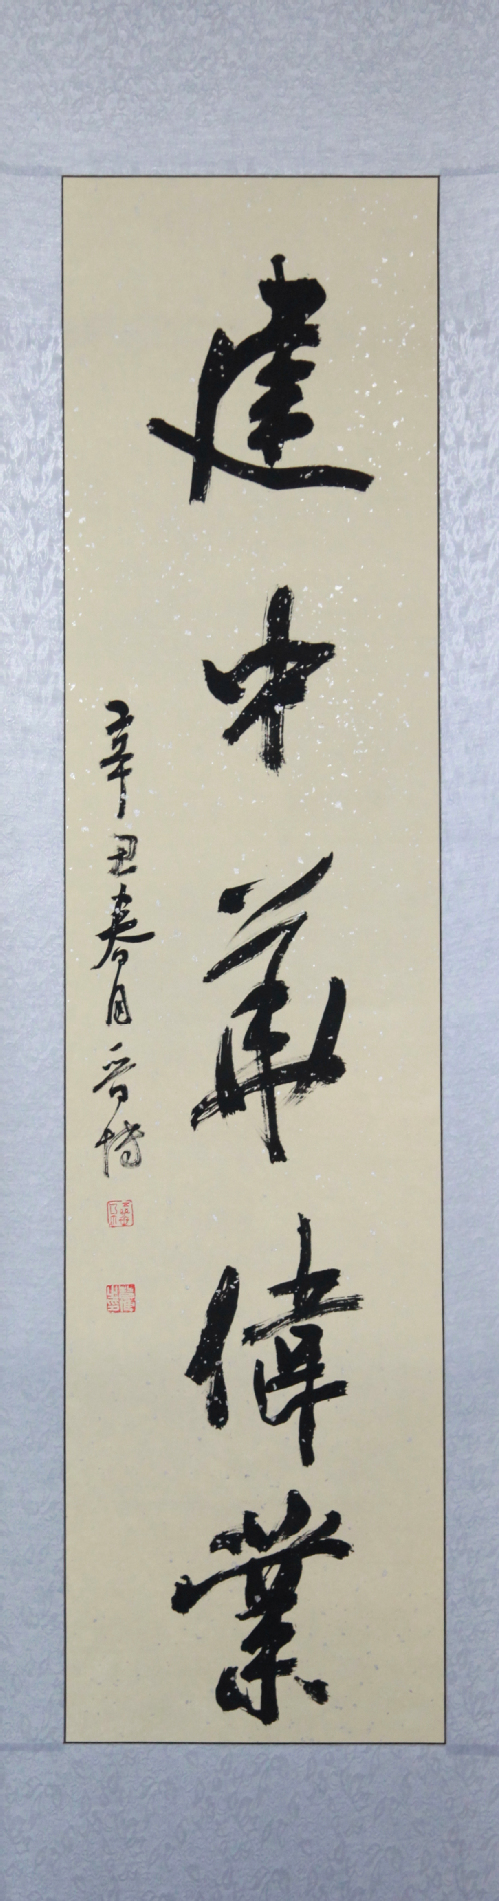 建中華偉業
辛丑春月晋博